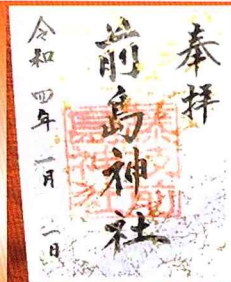 奉拝
前島神社
令和四年一月一日